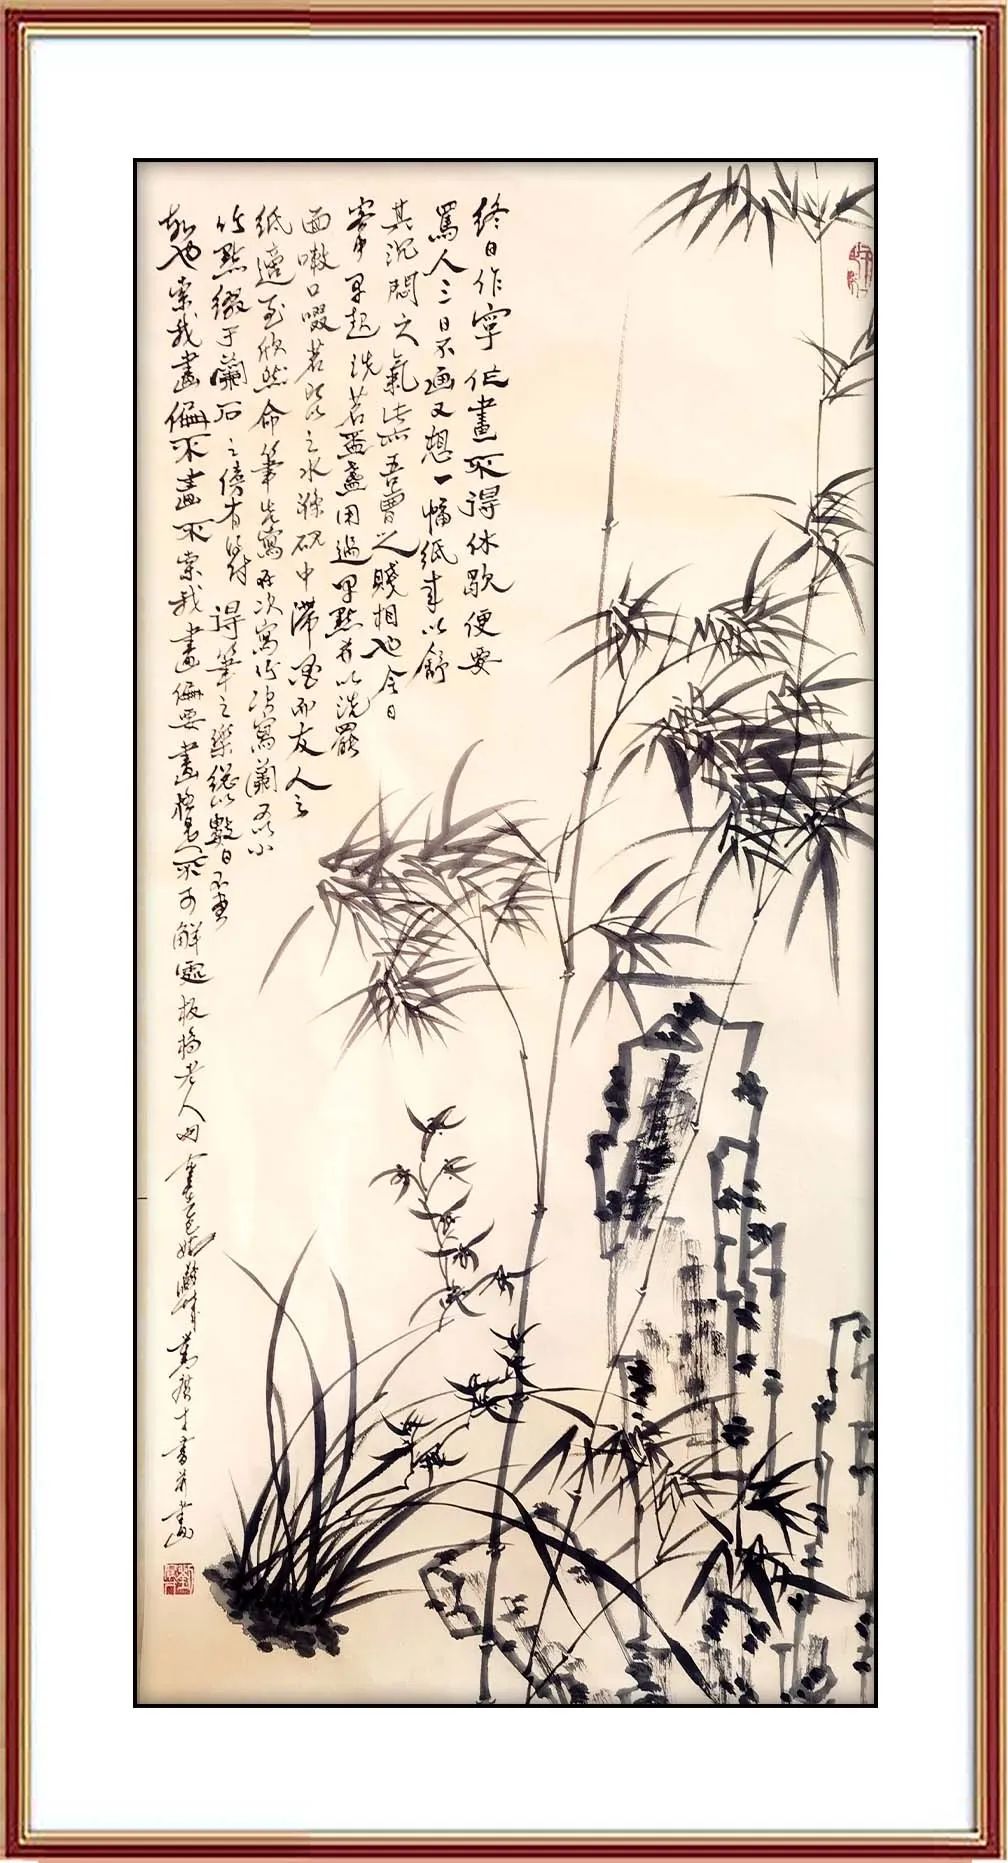 终日作字作畫不得休歇便要
罵人三日不画又想一幅紙來以舒
其沉悶之氣此吾曹之賤相也今日
早起洗茗盌盞用過墨點並以洗罷
面嗽口啜茗之水滌硯中滯墨而友人之
紙適至欣然命筆先寫石次寫竹次寫蘭又以小
竹點綴于蘭石之傍有得筆之樂總以數日不畫
故也索我畫偏不畫不索我畫偏要畫極是不可解處板橋老人
書并畫